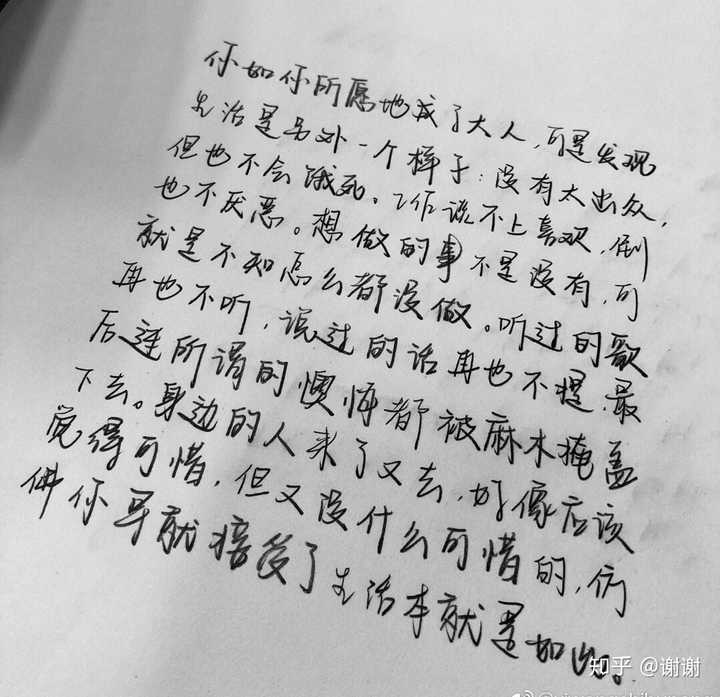 你如你所愿地成了大人，可是发现
生活是另外一个样子：没有太出众，
但也不会饿死。工作说不上喜欢，倒
也不厌恶。想做的事不是没有，可
就是不知怎么都没做。听过的歌
再也不听，说过的话再也不提，最
后连所谓的懊悔都被麻木掩盖
下去。身边的人来了又去，好像应该
觉得可惜，但又没什么可惜的，仿
佛你早就接受了生活本就是如此。
知乎 @谢谢